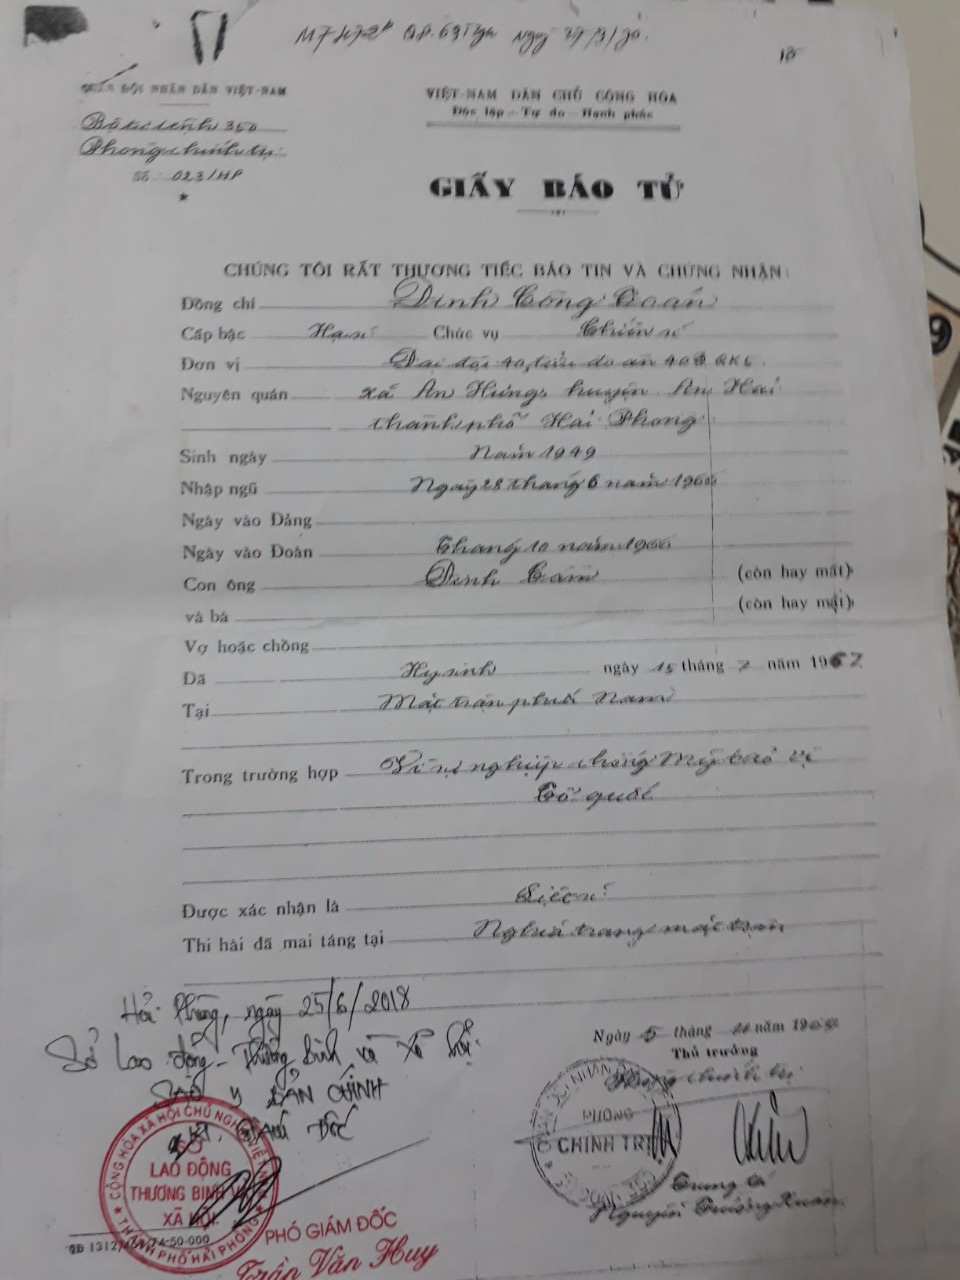 Ngày 27/9/70.
QUÂN ĐỘI NHÂN DÂN VIỆT-NAM
VIỆT-NAM DÂN CHỦ CỘNG HÒA
Độc lập - Tự do - Hạnh phúc
350
Phòng chính trị
Số: 023/HP
GIẤY BÁO TỬ
CHÚNG TÔI RẤT THƯƠNG TIẾC BÁO TIN VÀ CHỨNG NHẬN:
Đồng chí Đinh Công
Cấp bậc Hạ sĩ Chức vụ Chiến sĩ
Đơn vị Đại đội 40, tiểu đoàn
Nguyên quán xã An Hưng, huyện An Hải
thành phố Hải Phòng
Sinh ngày Năm 1949
Nhập ngũ Ngày 28 tháng 6 năm 1966
Ngày vào Đảng
Ngày vào Đoàn Tháng 10 năm 1966
Con ông Đinh (còn hay mất)
và bà (còn hay mất)
Vợ hoặc chồng
Đã Hy sinh ngày 15 tháng 7 năm 1967
Tại Mặt trận phía Nam
Trong trường hợp Vì sự nghiệp chống Mỹ bảo vệ
Tổ quốc
Được xác nhận là Liệt sĩ
Thi hài đã mai táng tại Nghĩa trang mặt trận
Hải Phòng, ngày 25/6/2018
Sở Lao động - Thương binh và Xã hội
SAO Y BẢN CHÍNH
KT. GIÁM ĐỐC
Ngày 5 tháng 11 năm 1968
Thủ trưởng
Phòng chính trị
PHÒNG
CHÍNH TRỊ
Trung tá
Nguyễn Trường Xuân
CỘNG HÒA XÃ HỘI CHỦ NGHĨA VIỆT NAM
SỞ
LAO ĐỘNG
THƯƠNG BINH VÀ
XÃ HỘI
THÀNH PHỐ HẢI PHÒNG
PHÓ GIÁM ĐỐC
Trần Văn Huy